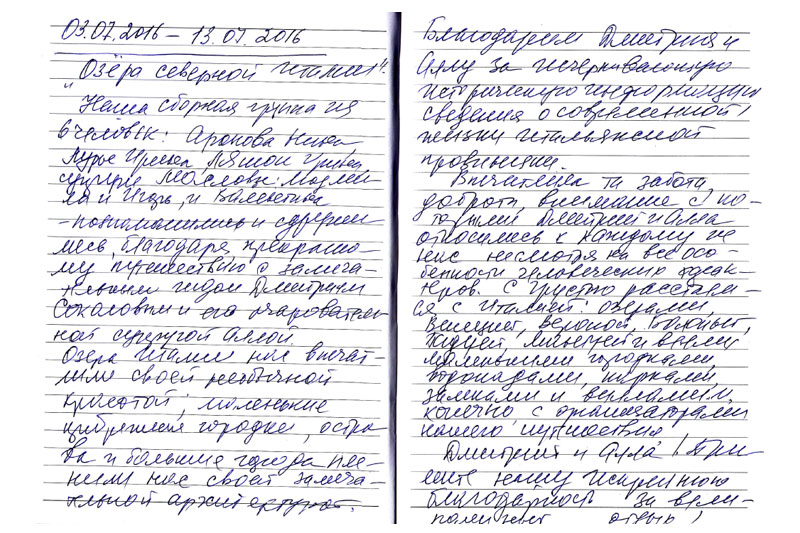 03.07.2016 – 13.07.2016
"Озёра северной Италии".
Наша сборная группа из
6 человек: Аронова Нина,
Ирина,
супруги Масловы: Людми-
ла и Игорь, и Валентина
– познакомились и сдружи-
лись, благодаря прекрасно-
му путешествию с замеча-
тельным гидом Дмитрием
Соколовым и его очарователь-
ной супругой Аллой.
Озёра Италии нас впечат-
лили своей необычной
красотой; маленькие
прибрежные городки, остро-
ва и большие города пле-
нили нас своей замеча-
тельной архитектурой.
Благодарим Дмитрия и
Аллу за исчерпывающую
историческую информацию,
сведения о современной
жизни итальянской
провинции.
Впечатлила та забота,
доброта, внимание с ко-
торыми Дмитрий и Алла
относились к каждому из
нас несмотря на все осо-
бенности человеческих харак-
теров. С грустью расстаём-
ся с Италией: озёрами,
Венецией, Вероной, Болоньей,
Падуей, Миланом и всеми
маленькими городками,
водопадами, парками,
замками и виллами и,
конечно с организаторами
нашего путешествия.
Дмитрий и Алла! При-
мите нашу искреннюю
благодарность за вели-
колепный отдых!